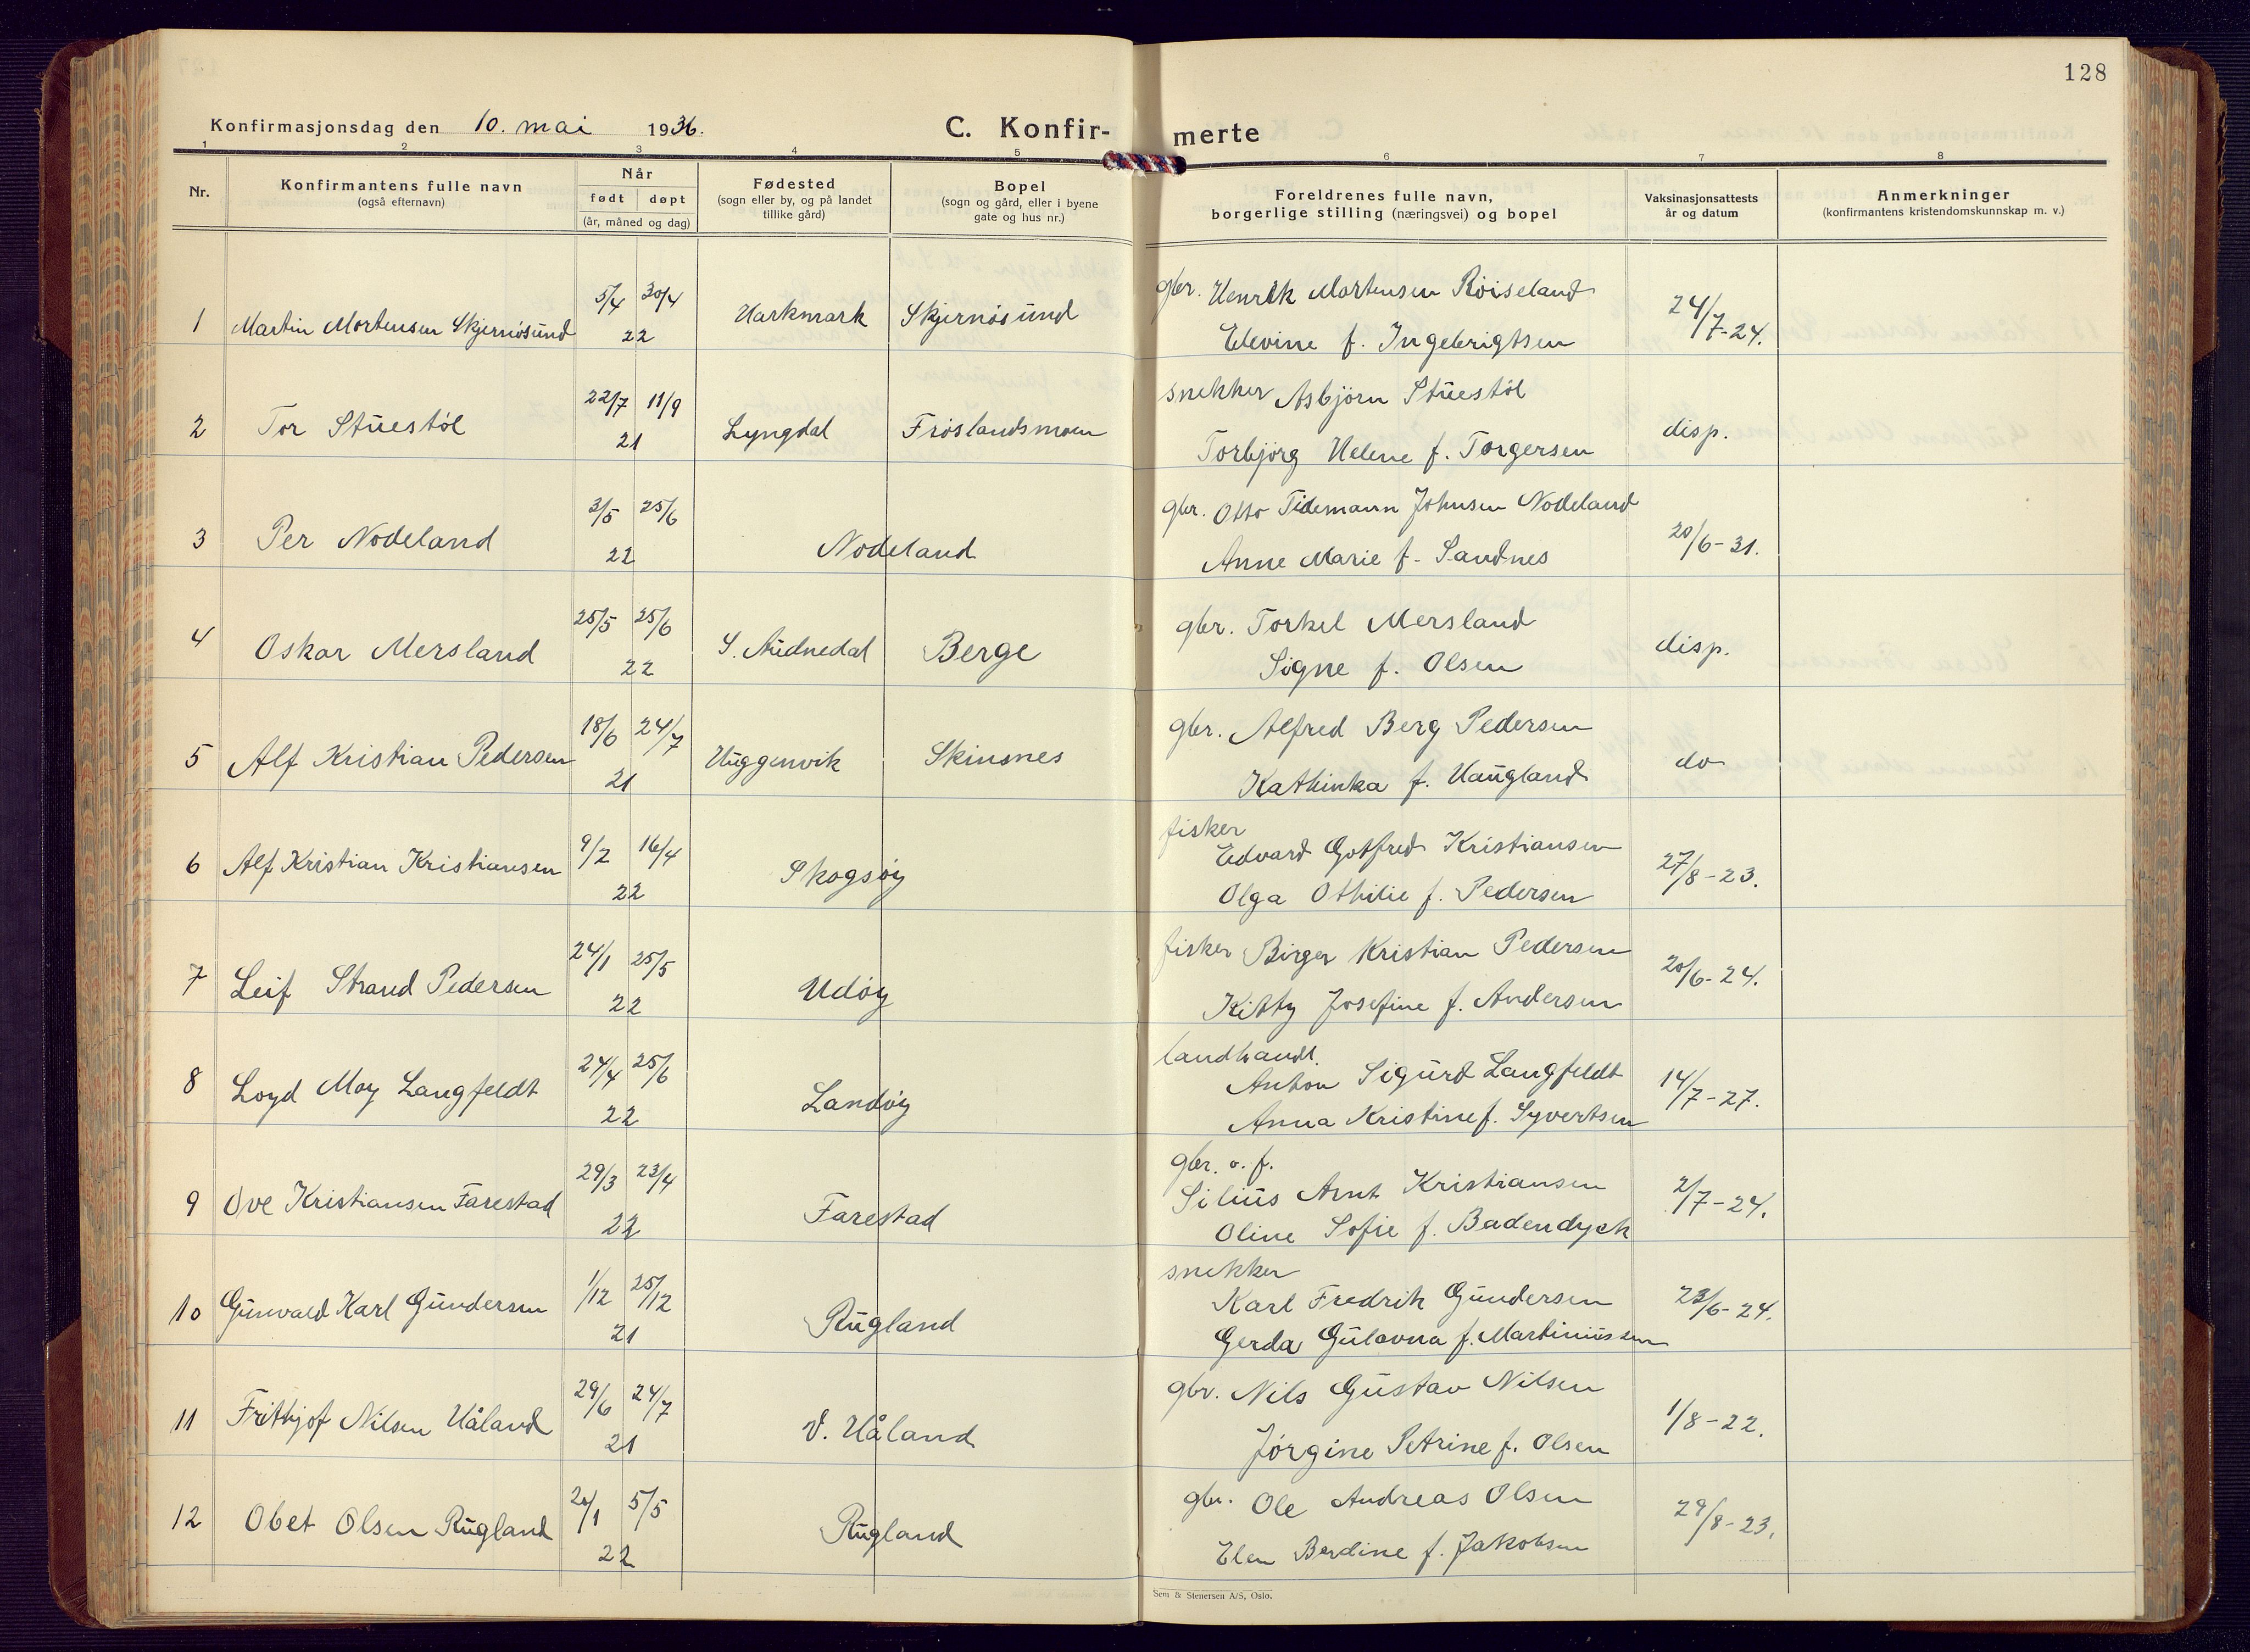 128
Konfirmasjonsdag den 10. mai 1936.
C. Konfir-merte
1 2 3 4 5 6 7 8
Nr.
Konfirmantens fulle navn
(også efternavn)
Når
født døpt
(år, måned og dag)
Fødested
(sogn eller by, og på landet
tillike gård)
Bopel
(sogn og gård, eller i byene
gate og hus nr.)
Foreldrenes fulle navn,
borgerlige stilling (næringsvei) og bopel
Vaksinasjonsattests
år og datum
Anmerkninger
(konfirmantens kristendomskunnskap m. v.)
1 Martin Mortensen Skjernøsund 5/4 30/4 22 Harkmark Skjernøsund
gbr. Henrik Mortensen Røiseland
Elevine f. Ingebrigtsen
24/7-24.
2 Tor Stuestøl 22/7 11/9 21 Lyngdal Frøslandsmoen
snekker Asbjørn Stuestøl
Torbjørg Helene f. Torgersen
disp.
3 Per Nodeland 3/5 25/6 22 Nodeland
gbr. Otto Tidemann Johnsen Nodeland
Anne Marie f. Sandnes
20/6-31.
4 Oskar Mersland 25/5 25/6 22 S. Audnedal Berge
gbr. Torkel Mersland
Signe f. Olsen
disp.
5 Alf Kristian Pedersen 18/6 24/7 21 Huggenvik Skinsnes
gbr. Alfred Berg Pedersen
Kathinka f. Haugland
do
6 Alf Kristian Kristiansen 9/2 16/4 22 Skogsøy
fisker
Edvard Gotfred Kristiansen
Olga Othilie f. Pedersen
27/8-23.
7 Leif Strand Pedersen 24/1 25/5 22 Udøy
fisker Birger Kristian Pedersen
Kitty Josefine f. Andersen
20/6-24.
8 Loyd Moy Langfeldt 24/4 25/6 22 Landøy
landhandl.
Anton Sigurd Langfeldt
Anna Kristine f. Syvertsen
14/7-27.
9 Ove Kristiansen Farestad 29/3 23/4 22 Farestad
gbr. o. f.
Silius Arnt Kristiansen
Oline Sofie f. Badendyck
2/7-24.
10 Gunvald Karl Gundersen 1/12 25/12 21 Rugland
snekker
Karl Fredrik Gundersen
Gerda Gulovna f. Martiniussen
23/6-24.
11 Frithjof Nilsen Håland 29/6 24/7 21 V. Håland
gbr. Nils Gustav Nilsen
Jørgine Petrine f. Olsen
1/8-22.
12 Obet Olsen Rugland 5/5 22 Rugland
gbr. Ole Andreas Olsen
Elen Berdine f. Jakobsen
29/8-23.
Sem & Stenersen A/S, Oslo.